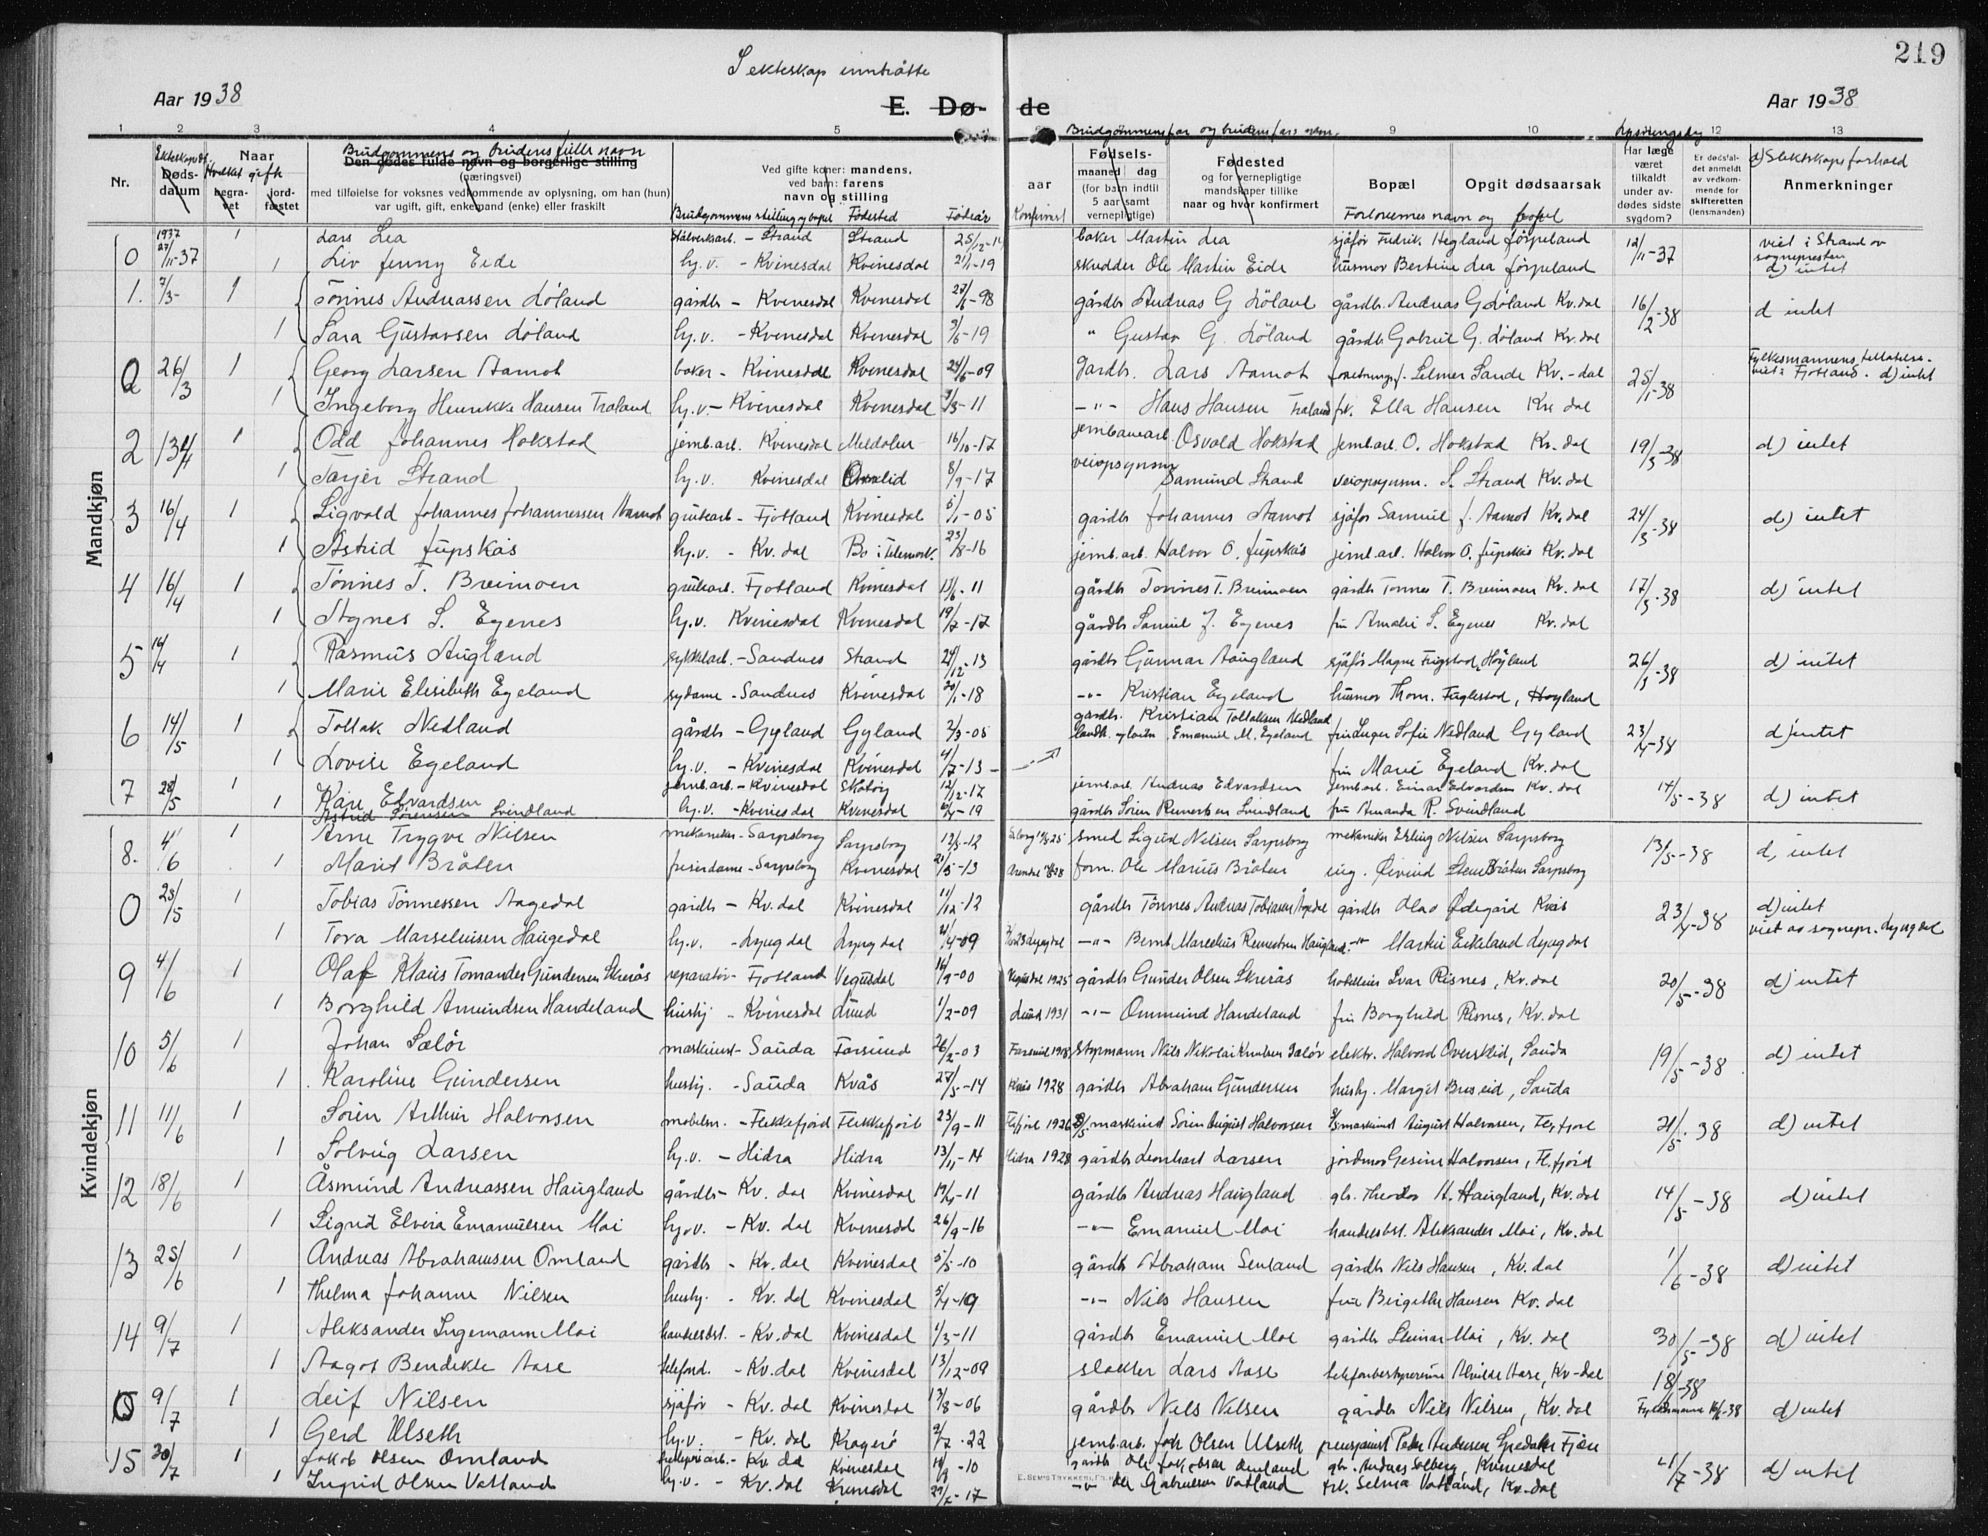 219
I ekteskap inntrådte
Aar 1938 E. Dø- de Aar 1938
1 2 3 4 5 9 10 12 13
Brudgommens far og brudens fars navn. Lysningsdag
Nr. Dødsdatum Naar begravet jordfæstet
Hvilket gift
Brudgommens og brudens fulle navn
Den dødes fulde navn og borgerlige stilling
(næringsvei)
med tilføielse for voksnes vedkommende av oplysning, om han (hun)
var ugift, gift, enkemand (enke) eller fraskilt
Ved gifte koner: mandens, ved barn: farens navn og stilling
Brudgommens stilling og bopel Fødested Fødselsår
aar Konfirmert
Fødselsmaaned dag (for barn indtil 5 aar samt vernepligtige)
Fødested og for vernepligtige mandskaper tillike naar og hvor konfirmert
Bopæl Opgit dødsaarsak
Forlovernes navn og bopel
Har læge været tilkaldt under avdødes sidste sygdom?
Er dødsfaldet anmeldt av vedkommende for skifteretten (lensmanden)
d) Slektskapsforhold
Anmerkninger
Mandkjøn
0 1937 27/11-37 1 Lars Lea - Strand Strand baker Martin Lea sjåfør Fredrik Hegland Jørpeland 12/11-37 viet i Strand av sognepresten d) intet
1 Liv Jenny Eide hj.v. - Kvinesdal Kvinesdal 21/1-19 skredder Ole Martin Eide husmor Bertine Lea Jørpeland
1. 7/3- 1 Tønnes Andreassen Løland gårdbr - Kvinesdal Kvinesdal 27/6-98 gårdbr Andreas G. Løland gårdbr. Andreas G. Løland Kv.dal 16/2-38 d intet
1 Sara Gustavsen Løland hj.v. - Kvinesdal Kvinesdal 9/6-19 " Gustav G. Løland gårdbr. Gabriel G. Løland Kv.dal
0 26/3 1 Georg Larsen Aamot baker - Kvinesdal Kvinesdal 24/6-09 Gardbr. Lars Aamot Selmer Sande Kv.-dal 25/1-38 Fylkesmannens tillatelse. viet i Fjotland. d) intet
1 Ingeborg Henrikke Hansen Træland hj.v. - Kvinesdal Kvinesdal 9/3-11 -"- Hans Hansen Træland frk. Ella Hansen Kv.dal
2 13/4 1 Odd Johannes Hokstad jernb.arb. Kvinesdal Meldalen 16/10-17 jernbanearb. Osvald Hokstad jernb.arb. O. Hokstad Kv.dal 19/3-38 d) intet
1 Tarjer Strand hj.v. Kvinesdal 8/9-17 veiopsynsm. Samund Strand veiopsynsm. S. Strand Kv.dal
3 16/4 1 Sigvald Johannes Johannessen Aamot grubearb - Fjotland Kvinesdal 5/1-05 gardbr Johannes Aamot sjåfør Samuel J. Aamot Kv.dal 24/3-38 d) intet
1 Astrid Jupskås hj.v. - Kv.dal Bø i Telemark. 23/8-16 jernb.arb. Halvor O. Jupskås jernb.arb. Halvor O. Jupskås Kv.dal
4 16/4 1 Tønnes T. Breimoen grubearb. Fjotland Kvinesdal 13/6-11 gårdbr Tønnes T. Breimoen gårdbr Tønnes T. Breimoen Kv.dal 17/3-38 d) intet
1 Agnes S. Egenes hj.v. Kvinesdal Kvinesdal 19/7-17 gårdbr Samuel J. Egenes fru Amalie S. Egenes Kv.dal
5 16/4 1 Rasmus Augland sykkelarb. - Sandnes Strand 24/12-13 gårdbr Gunnar Aaugland sjåfør Magne Frigstad, Høyland 26/3-38 d) intet
1 Marie Elisabeth Egeland sydame - Sandnes Kvinesdal 30/1-18 -"- Kristian Egeland husmor Thom. Faglestad, Høyland
6 14/5 1 Tollak Nedland gårdbr - Gyland Gyland 2/3-05 gårdbr. Kristian Tollaksen Nedland fru Inger Sofie Nedland Gyland 23/4-38 d) intet
1 Lovise Egeland hj.v. - Kvinesdal Kvinesdal 4/7-13 Emanuel M. Egeland fru Marie Egeland Kv.dal
7 28/5 1 Kåre Edvardsen jernb.arb. - Kvinesdal Skotøy 12/12-17 jernb.arb. Andreas Edvardsen jernb.arb. Einar Edvardsen Kv.dal 14/5-38 d) intet
1 Astrid Sørensen Svindland hj.v. - Kvinesdal Kvinesdal gårdbr Søren Svindland fru Amanda R. Svindland
Kvindekjøn
8. 4/6 1 Arne Trygve Nilsen mekaniker - Sarpsborg Sarpsborg 12/5-12 smed Sigurd Nilsen Sarpsborg mekaniker Erling Nilsen Sarpsborg 13/5-38 d, intet
1 Marit Bråten frisørdame - Sarpsborg Kvinesdal 21/5-13 Arendal form. Ole Marius Bråten ing. Øivind Stene Bråten Sarpsborg
0 28/5 1 Tobias Tønnessen Aagedal gårdbr - Kv.dal Kvinesdal 11/12-12 gårdbr Tønnes Andreas Tobiassen Ågedal gårdbr Olav Ødegård Kvås 23/4-38 d) intet viet av sognepr. Lyngdal
1 Tora Marseliusen Haugedal hj.v. - Lyngdal Lyngdal 21/4-09 Lyngdal -"- Bernt Marcelius Haugland -"- Martin Eikeland Lyngdal
9 4/6 1 Olaf Klaus Tomander Gundersen Skreås reparatør - Fjotland Vegusdal 16/9-00 Vegusdal 1925 gårdbr Gunder Olsen Skreås hotelleier Ivar Risnes, Kv.dal 20/5-38 d) intet
1 Borghild Amundsen Handeland hushj. - Kvinesdal Lund 1/2-09 Lund 1931 -"- Ommund Handeland fru Borghild Risnes, Kv.dal
10 5/6 1 Johan Sælør maskinist - Sauda Farsund 26/2-03 Farsund 1918 styrmann Nils Nikolai Knutsen Sælør elektr. Halvord Overskeid, Sauda 19/5-38 d) intet
1 Karoline Gundersen hushj. - Sauda Kvås 27/5-14 Kvås 1928 gårdbr Abraham Gundersen hushj. Margit Busseid, Sauda
11 11/6 1 Søren Arthur Halvorsen møbelsn. - Flekkefjord Flekkefjord 23/9-11 Flefjord 1926 maskinist Søren August Halvorsen maskinist August Halvorsen, Flefjord 21/5-38 d) intet
1 Solveig Larsen hj.v. - Hidra Hidra 13/11-14 Hidra 1928 gårdbr Leonhart Larsen jordmor Gesine Halvorsen, Fl.fjord
12 18/6 1 Åsmund Andreassen Haugland gårdbr - Kv.dal Kvinesdal 19/4-11 gårdbr Andreas Haugland gbr. Theodor A. Haugland, Kv.dal 14/5-38 d) intet
1 Sigrid Elvira Emanuelsen Moi hj.v. - Kv.dal Kvinesdal 26/9-16 -"- Emanuel Moi handelsbst. Aleksander Moi, Kv.dal
13 25/6 1 Andreas Abrahamsen Omland gårdbr - Kv.dal Kvinesdal 5/5-10 gårdbr Abraham Senland gårdbr Nils Hansen, Kv.dal 1/6-38 d) intet
1 Thelma Johanne Nilsen hushj. - Kv.dal Kvinesdal 5/4-19 -"- Nils Hansen fru Birgitte Hansen Kv.dal
14 9/7 1 Aleksander Ingemann Moi handelsbst. - Kv.dal Kvinesdal 1/3-11 gårdbr Emanuel Moi gårdbr Steinar Moi, Kv.dal 30/5-38 d) intet
1 Aagot Bendikte Aase telefond. - Kv.dal Kvinesdal 13/12-09 slakter Lars Aase telefonbestyrerinne Alvilde Aase, Kv-dal
0 9/7 1 Leif Nilsen sjåfør - Kv.dal Kvinesdal 13/8-06 gårdbr Nils Nilsen gårdbr Nils Nilsen, Kv.dal 18/-38 d) intet
1 Gerd Ulseth hj.v. - Kv.dal Kragerø 9/7-22 jernb.arb. Joh Olsen Ulseth Peder Andersen
15 30/7 1 Jakob Olsen Omland - Kv.dal Kvinesdal 14/9-10 gårdbr Ole Jakobsen Omland gbr. Andreas Solberg, Kvinesdal 21/7-38 d) intet
1 Ingrid Olsen Vatland hj.v. - Kv.dal Kvinesdal -17 -"- Ole Gabrielsen Vatland frk. Selma Vatland, Kv-dal
E. SEM'S TRYKKERI